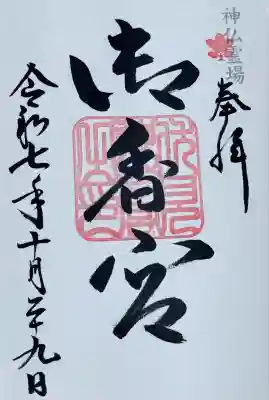 神仏霊場
奉拝
御香宮
令和七年十月二十九日